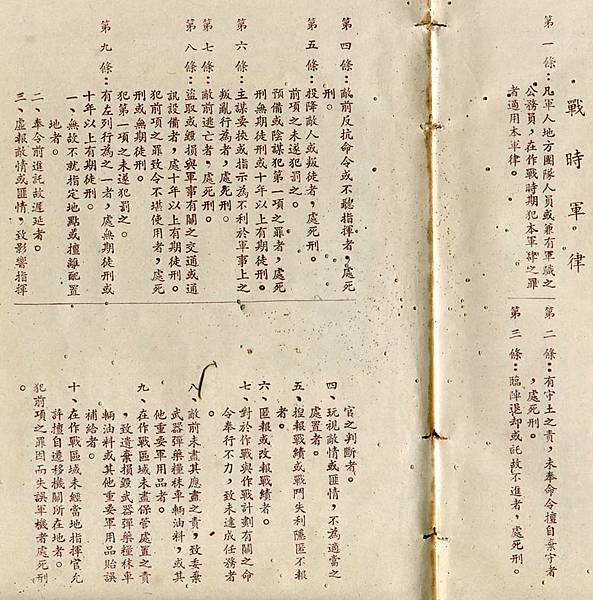 戰時軍律
第一條：凡軍人地方團隊人員或兼有軍職之
公務員，在作戰時期犯本軍律之罪
者適用本軍律。
第二條：有守土之責，未奉命令擅自棄守者
，處死刑。
第三條：臨陣退却或託故不進者，處死刑。
第四條：敵前反抗命令或不聽指揮者，處死
刑。
第五條：投降敵人或叛徒者，處死刑。
前項之未遂犯罰之。
預備或陰謀犯第一項之罪者，處死
刑無期徒刑或十年以上有期徒刑。
第六條：主謀要挾或指示為不利於軍事上之
叛亂行為者，處死刑。
第七條：敵前逃亡者，處死刑。
第八條：盜取或毀損與軍事有關之交通或通
訊設備者，處十年以上有期徒刑。
犯前項之罪致令不堪使用者，處死
刑或無期徒刑。
犯第一項之未遂犯罰之。
第九條：有左列行為之一者，處無期徒刑或
十年以上有期徒刑。
一、無故不就指定地點或擅離配置
地者。
二、奉令前進託故遲延者。
三、虛報敵情或匪情，致影響指揮
官之判斷者。
四、玩視敵情或匪情，不為適當之
處置者。
五、捏報戰績或戰鬥失利隱匿不報
者。
六、匿報或改報戰績者。
七、對於作戰與作戰計劃有關之命
令奉行不力，致未達成任務者
。
八、敵前未盡其應盡之責，致委棄
武器彈藥糧秣車輛油料，或其
他重要軍用品者。
九、在作戰區域未盡保管處置之責
，致遺棄損毀武器彈藥糧秣車
輛油料或其他重要軍用品貽誤
補給者。
十、在作戰區域未經當地指揮官允
許擅自遷移機關所在地者。
犯前項之罪因而失誤軍機者處死刑
。